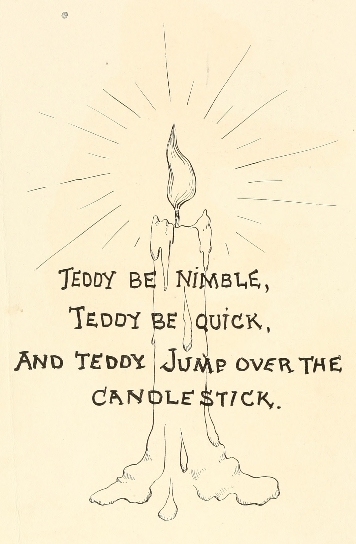 TEDDY BE NIMBLE,
TEDDY BE QUICK,
AND TEDDY JUMP OVER THE
CANDLESTICK.